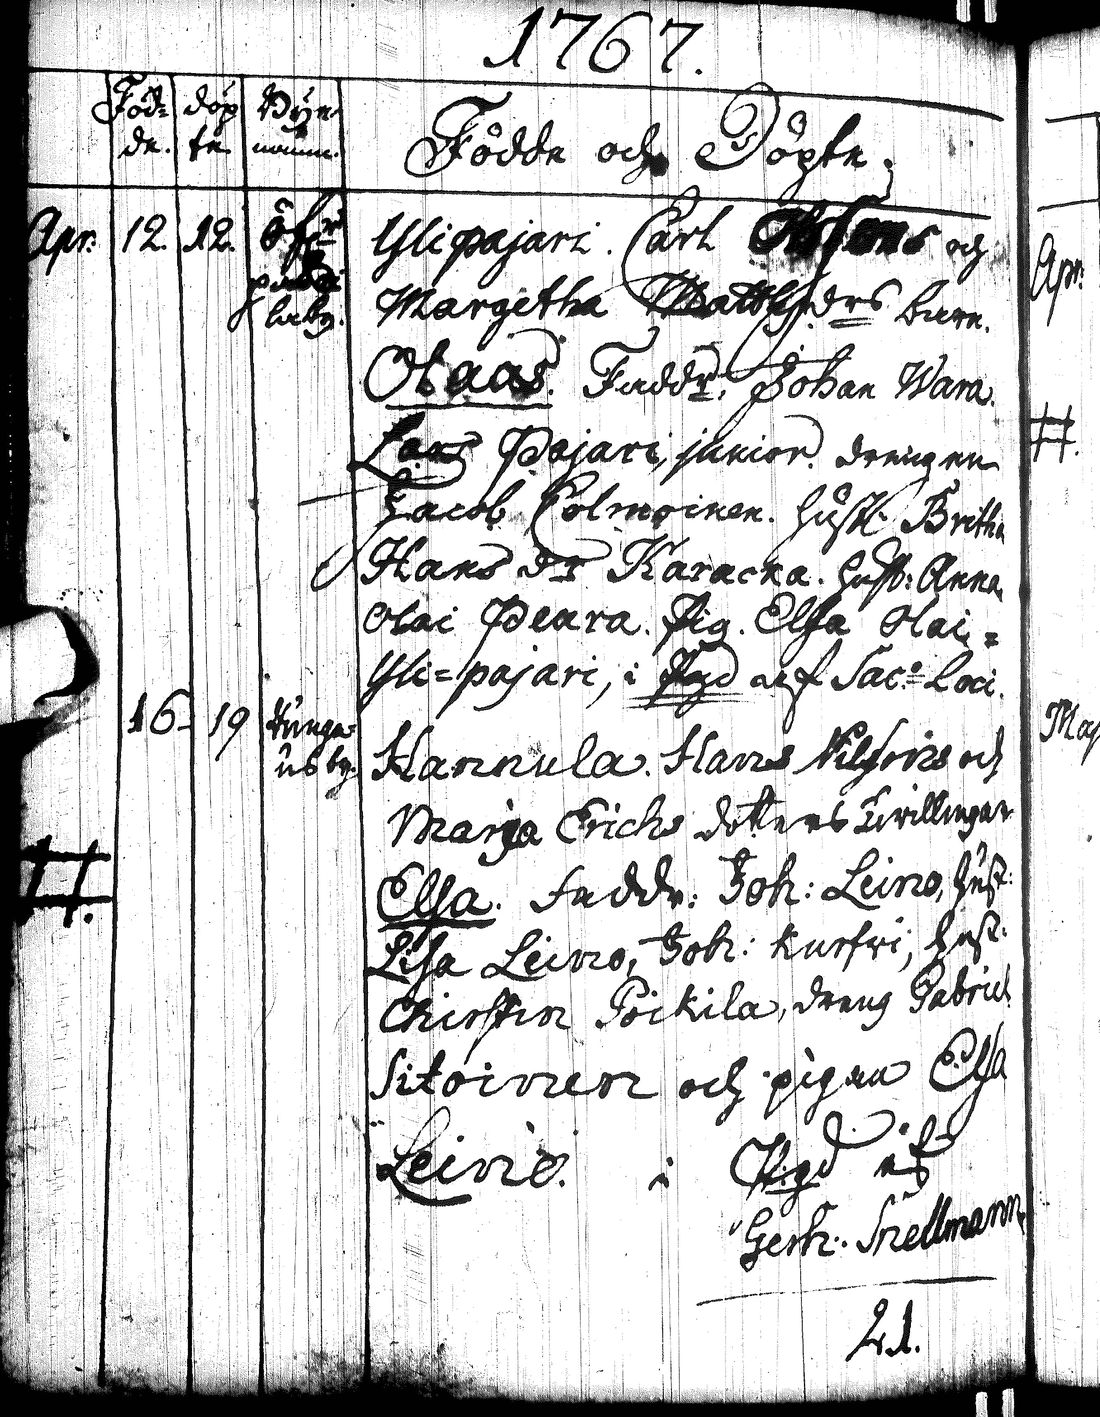 1767.
Föd= döp Byn
de. te namn.
Födde och Döpte.
Apr: 12. 12.
Ylipajari. Carl och
Margetha Matths drs barn.
Olaas. Faddr: Johan Wara.
Lars Pajari, junior. drengen
Jacob Colmoinen. hust: Britha
Hans dr Karacka. hust: Anna
Olai Peara. Pig. Elsa Olai=
Yli=pajari, i af Sac: Loci.
16 19
Hannula. Hans Nilsons och
Marja Erichs dotters twillingar
Elsa. Faddr: Joh: Leino, hust:
Lisa Leino, Joh: hust:
Chirstin Pöickila, dreng Gabriel
Sitoinen och pigan Elsa
Leino. i af
Gerh: Snellmann
21.
Apr:
#.
#.